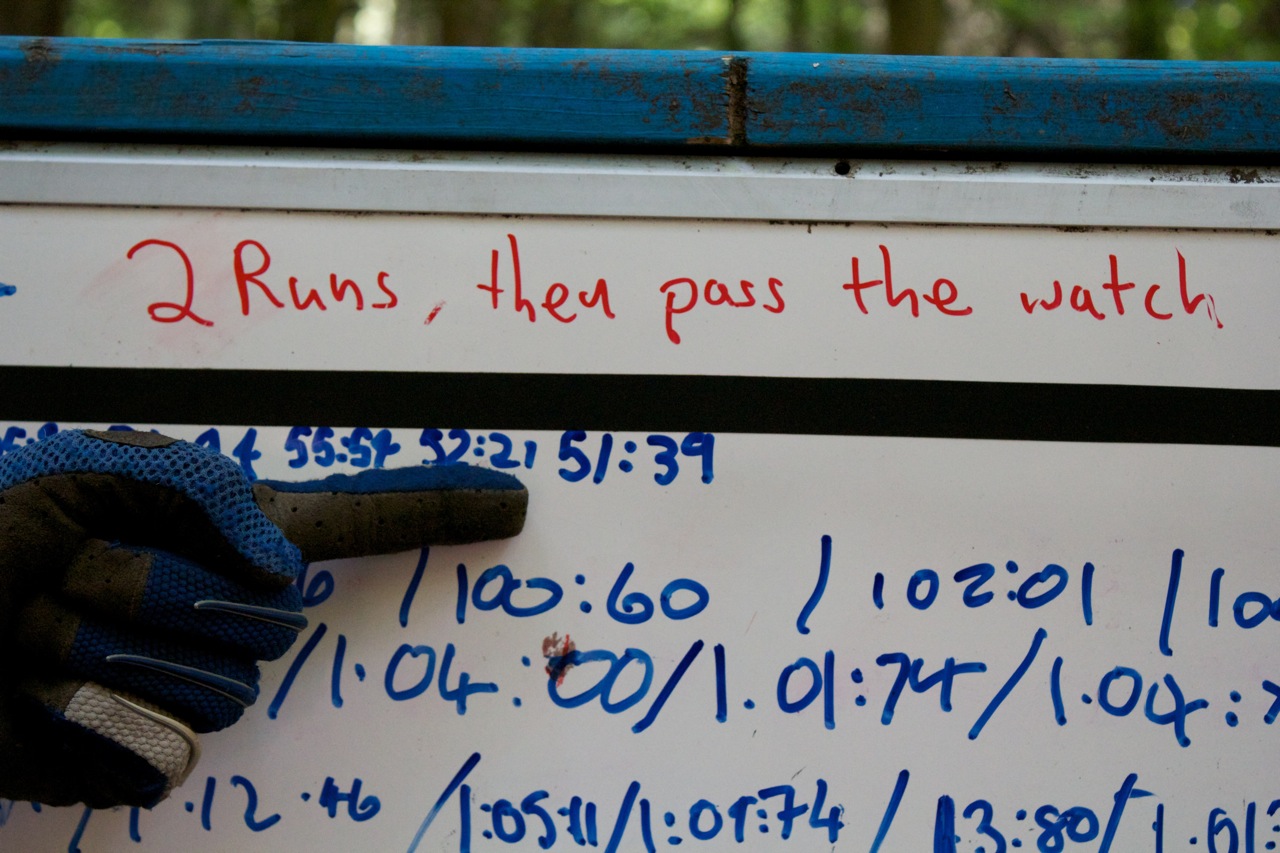 2 Runs, then pass the watch
55:54 52:21 51:39
/ 100:60 / 102:01 / 100
/ 1.04:00 / 1.01:74 / 1.04:
.12.46 / 1:05:11 / 1:01:74 / 13:80 / 1.01: